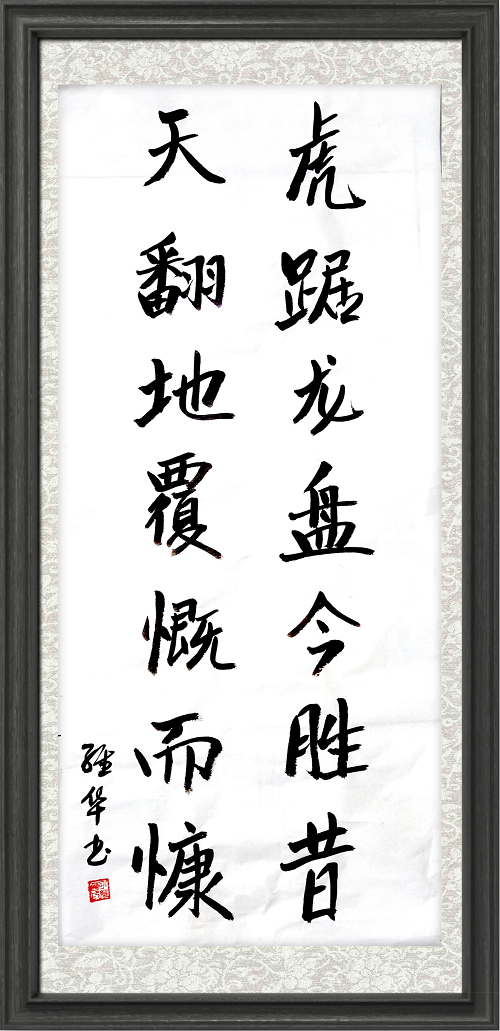 虎踞龙盘今胜昔
天翻地覆慨而慷
经华书